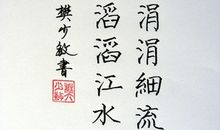 涓涓細流
滔滔江水
樊少敏書